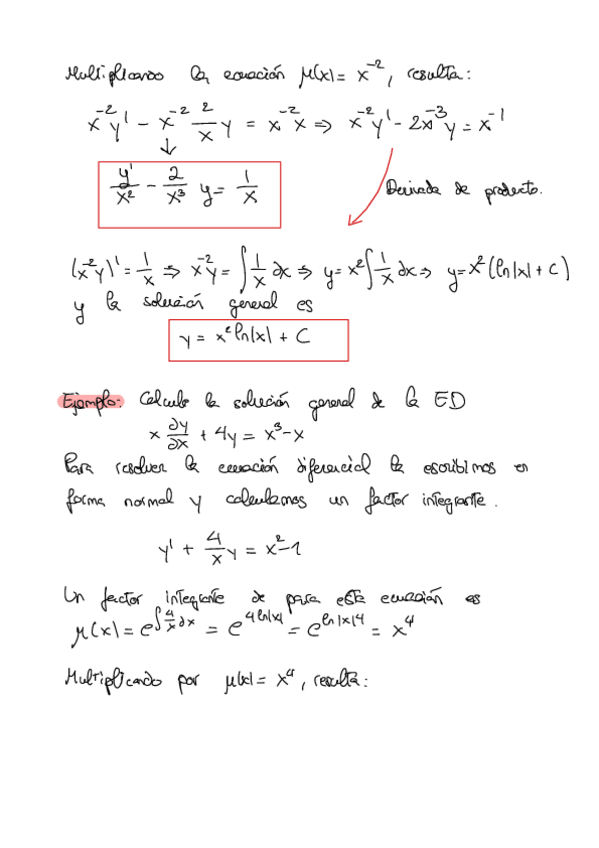 Multiplicando la ecuación μ(x) = x⁻², resulta:
x⁻²y' - x⁻² 2/x y = x⁻²x ⇒ x⁻²y' - 2x⁻³y = x⁻¹
↓
y'/x² - 2/x³ y = 1/x
Derivada de producto.
(x⁻²y)' = 1/x ⇒ x⁻²y = ∫ 1/x ∂x ⇒ y = x² ∫ 1/x ∂x ⇒ y = x² (ln|x| + C)
y la solución general es
y = x² ln|x| + C
Ejemplo: Calcula la solución general de la ED
x ∂y/∂x + 4y = x³ - x
Para resolver la ecuación diferencial la escribimos en
forma normal y calculamos un factor integrante.
y' + 4/x y = x² - 1
Un factor integrante de para esta ecuación es
μ(x) = e^∫ 4/x ∂x = e^4 ln|x| = e^ln|x|4 = x⁴
Multiplicando por μ(x) = x⁴, resulta: